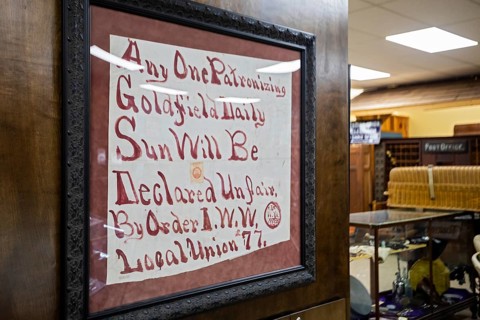 Any One Patronizing
Goldfield Daily
Sun Will Be
Declared Unfair.
By Order I.W.W.
Local Union "77.
POST OFFICE